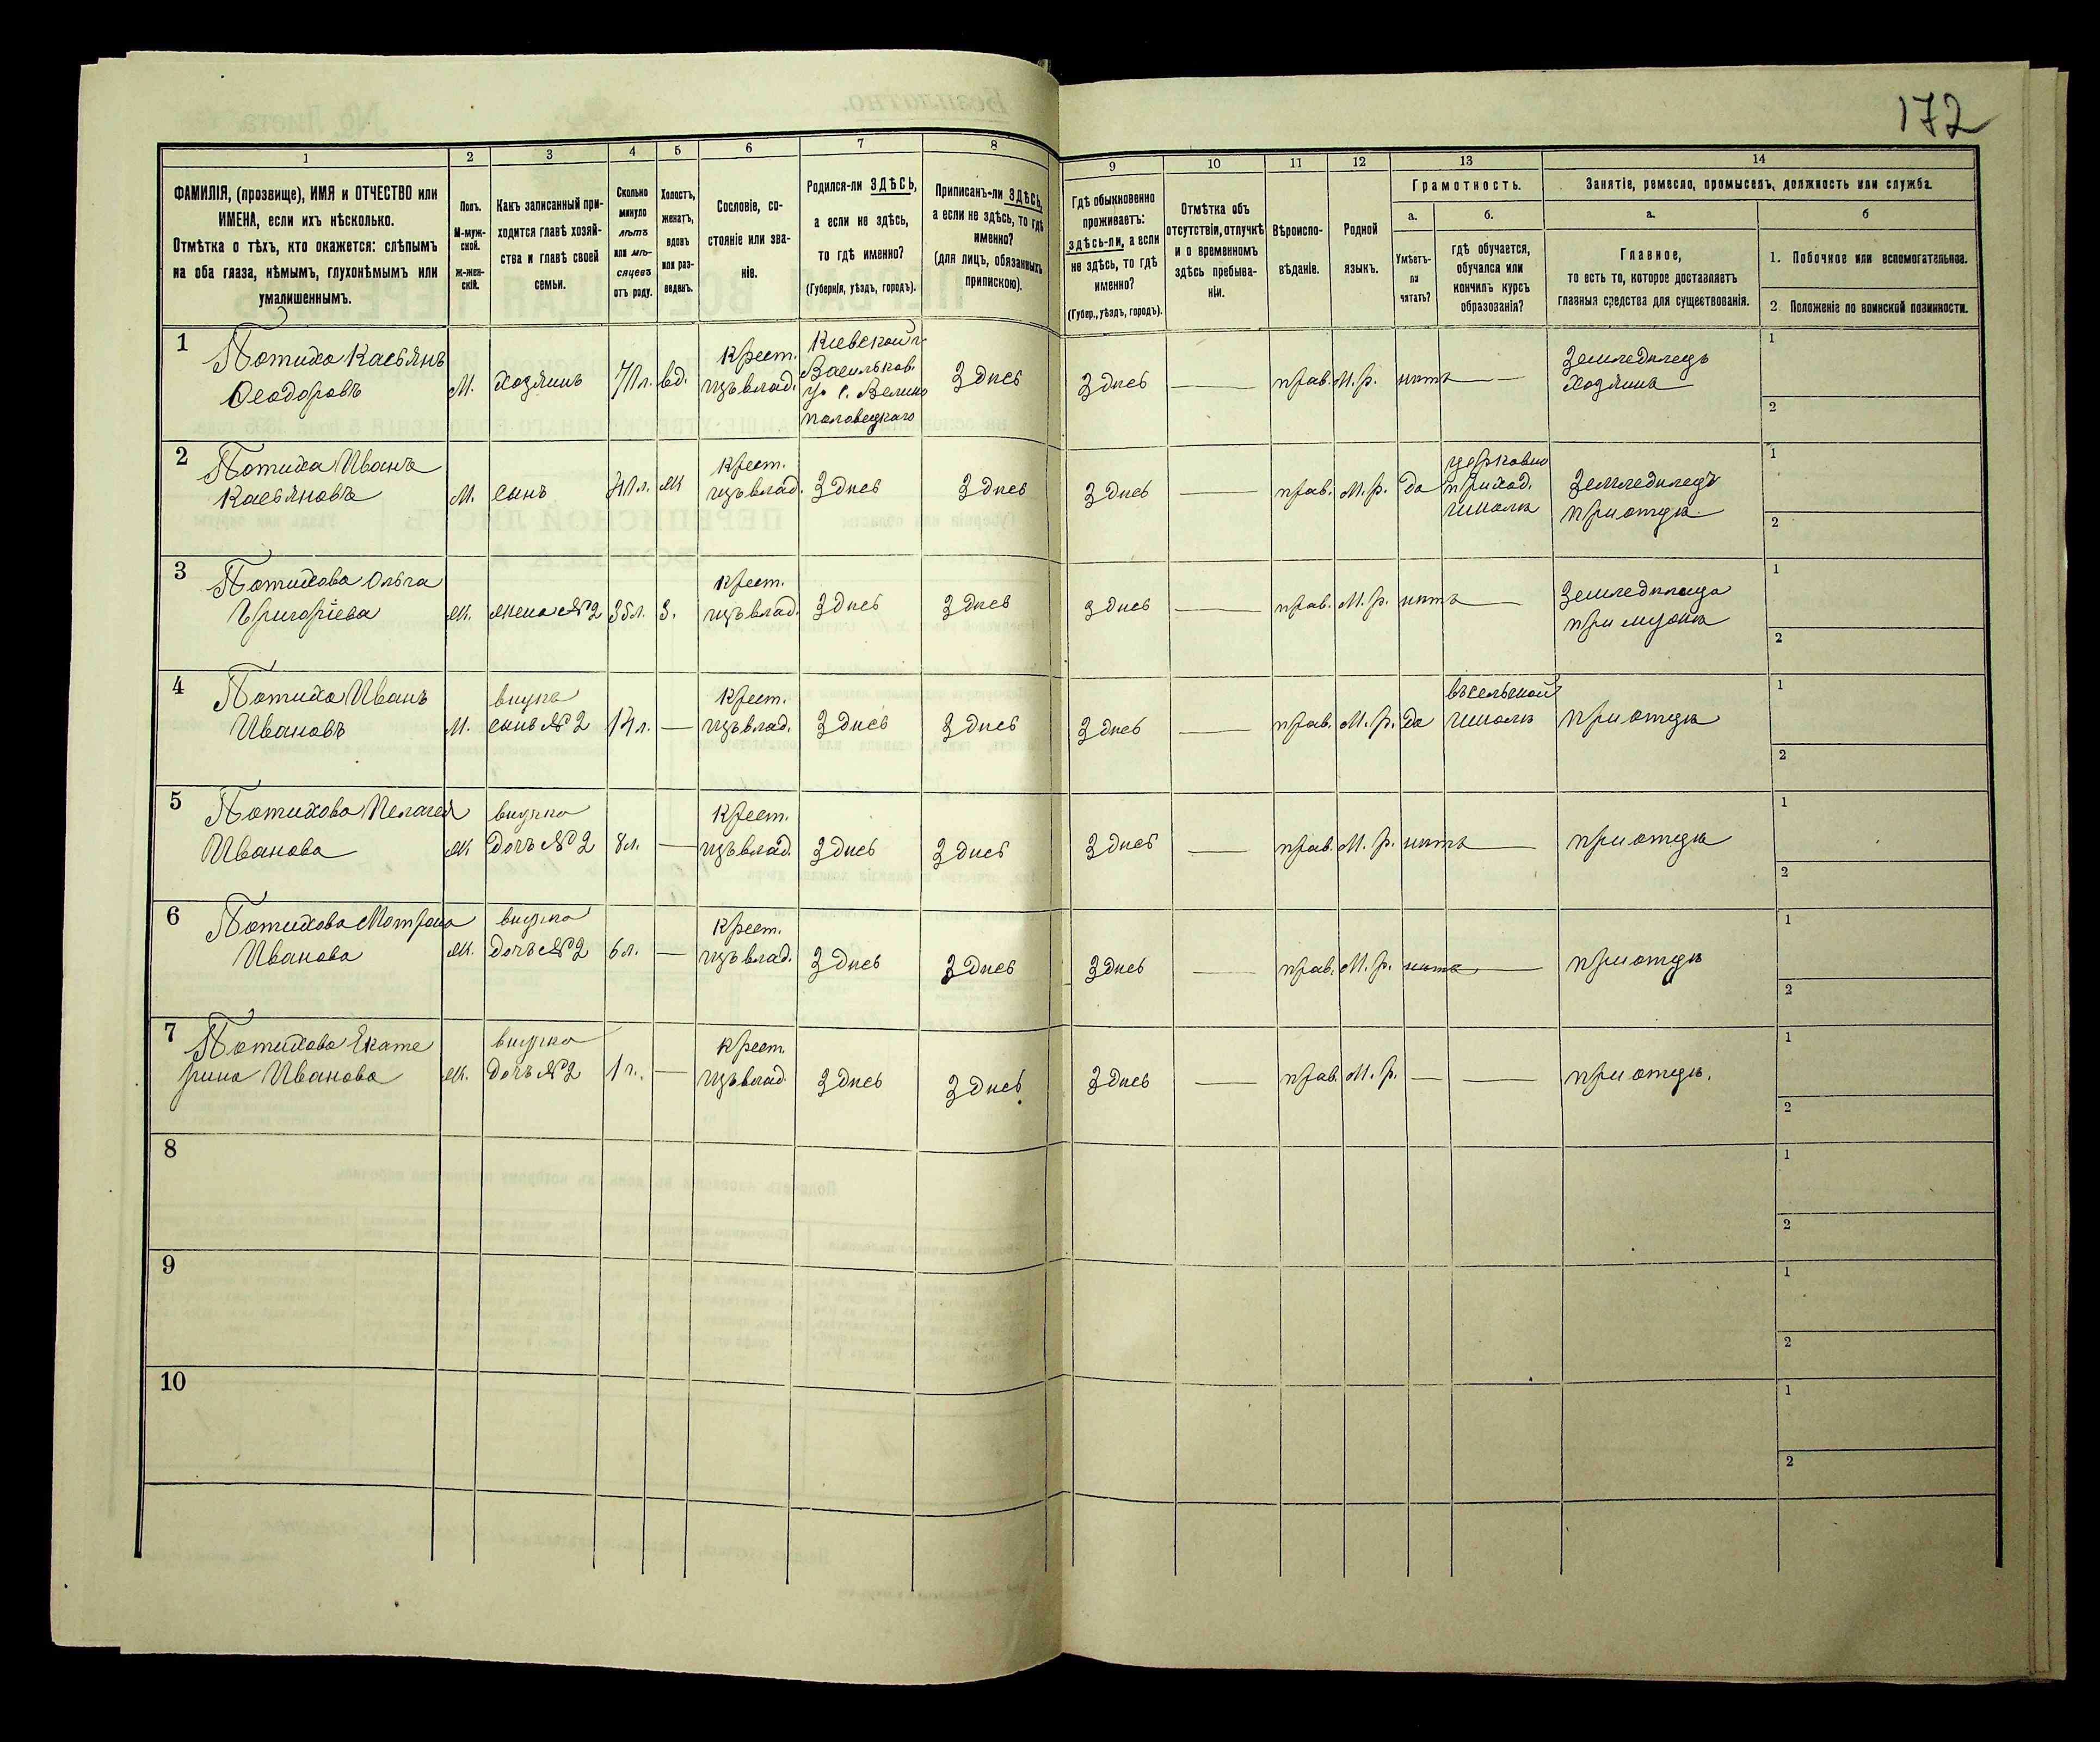 172
1 2 3 4 5 6 7 8 9 10 11 12 13 14
ФАМИЛІЯ, (прозвище), ИМЯ и ОТЧЕСТВО или
ИМЕНА, если ихъ нѣсколько.
Отмѣтка о тѣхъ, кто окажется: слѣпымъ
на оба глаза, нѣмымъ, глухонѣмымъ или
умалишеннымъ.
Полъ.
М-муж-
ской.
Ж-жен-
скій.
Какъ записанный при-
ходится главѣ хозяй-
ства и главѣ своей
семьи.
Сколько
минуло
лѣтъ
или мѣ-
сяцевъ
отъ роду.
Холостъ,
женатъ,
вдовъ
или раз-
веденъ.
Сословіе, со-
стояніе или зва-
ніе.
Родился-ли ЗДѢСЬ,
а если не здѣсь,
то гдѣ именно?
(Губернія, уѣздъ, городъ).
Приписанъ-ли ЗДѢСЬ,
а если не здѣсь, то гдѣ
именно?
(для лицъ, обязанныхъ
припискою).
Гдѣ обыкновенно
проживаетъ:
здѣсь-ли, а если
не здѣсь, то гдѣ
именно?
(Губер., уѣздъ, городъ).
Отмѣтка объ
отсутствіи, отлучкѣ
и о временномъ
здѣсь пребыва-
ніи.
Вѣроиспо-
вѣданіе.
Родной
языкъ.
Грамотность.
а.
Умѣетъ-
ли
читать?
б.
гдѣ обучается,
обучался или
кончилъ курсъ
образованія?
Занятіе, ремесло, промыселъ, должность или служба.
а.
Главное,
то есть то, которое доставляетъ
главныя средства для существованія.
б
1. Побочное или вспомогательное.
2. Положеніе по воинской повинности.
1
Потиха Касьянъ
Ѳеодоровъ
М.
хозяинъ
71 л.
вд.
Крест.
изъ влад.
Кіевской г.
Васильков.
у. с. Велико
половецкаго
Здесь
Здесь
—
прав.
М. р.
нитъ
—
Земледилецъ
хозяинъ
1
2
2
Потиха Иванъ
Касьяновъ
М.
сынъ
Ж
Крест.
изъ влад.
Здесь
Здесь
Здесь
—
прав.
М. р.
да
церковно
приход.
школи
Земледилецъ
при отци
1
2
3
Потихова Ольга
Григоріева
Ж.
жена №2
35 л.
З.
Крест.
изъ влад.
Здесь
Здесь
Здесь
—
прав.
М. р.
нитъ
—
Земледилица
при мужи
1
2
4
Потиха Иванъ
Ивановъ
М.
внукъ
сынъ №2
14 л.
—
Крест.
изъ влад.
Здесь
Здесь
Здесь
—
прав.
М. р.
да
въ сельской
школи
при отци
1
2
5
Потихова Пелагея
Иванова
Ж
внучка
дочь №2
8 л.
—
Крест.
изъ влад.
Здесь
Здесь
Здесь
—
прав.
М. р.
нитъ
—
при отци
1
2
6
Потихова Мотрона
Иванова
Ж.
внучка
дочь №2
6 л.
—
Крест.
изъ влад.
Здесь
Здесь
Здесь
—
прав.
М. р.
нитъ
—
при отци
1
2
7
Потихова Екате
рина Иванова
Ж.
внучка
дочь №2
1 г.
—
Крест.
изъ влад.
Здесь
Здесь
Здесь
—
прав.
М. р.
—
—
при отци.
1
2
8
1
2
9
1
2
10
1
2